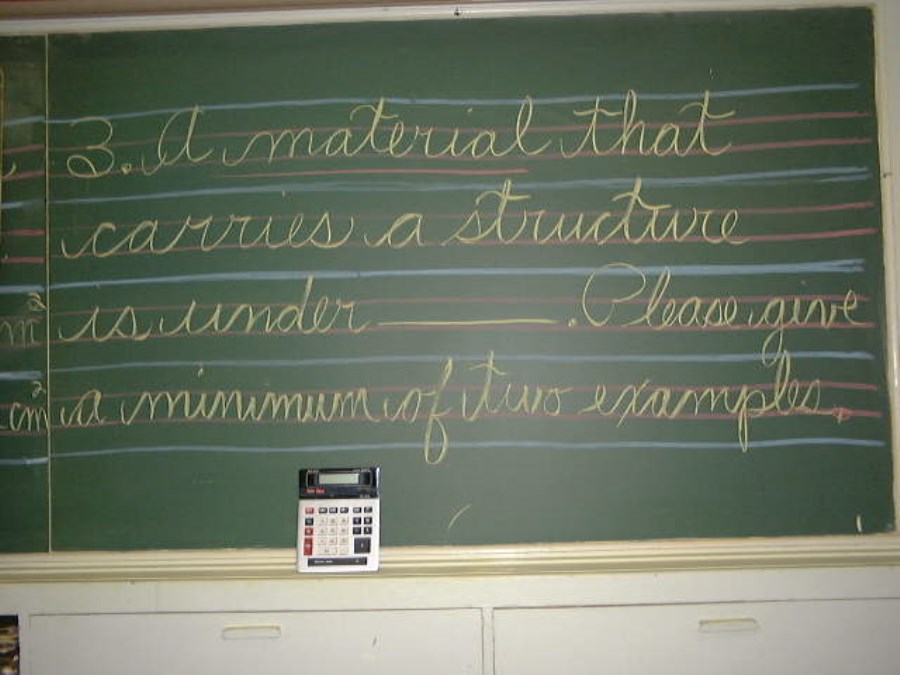 3. A material that
carries a structure
is under ______. Please give
m²
a minimum of two examples.
cm²